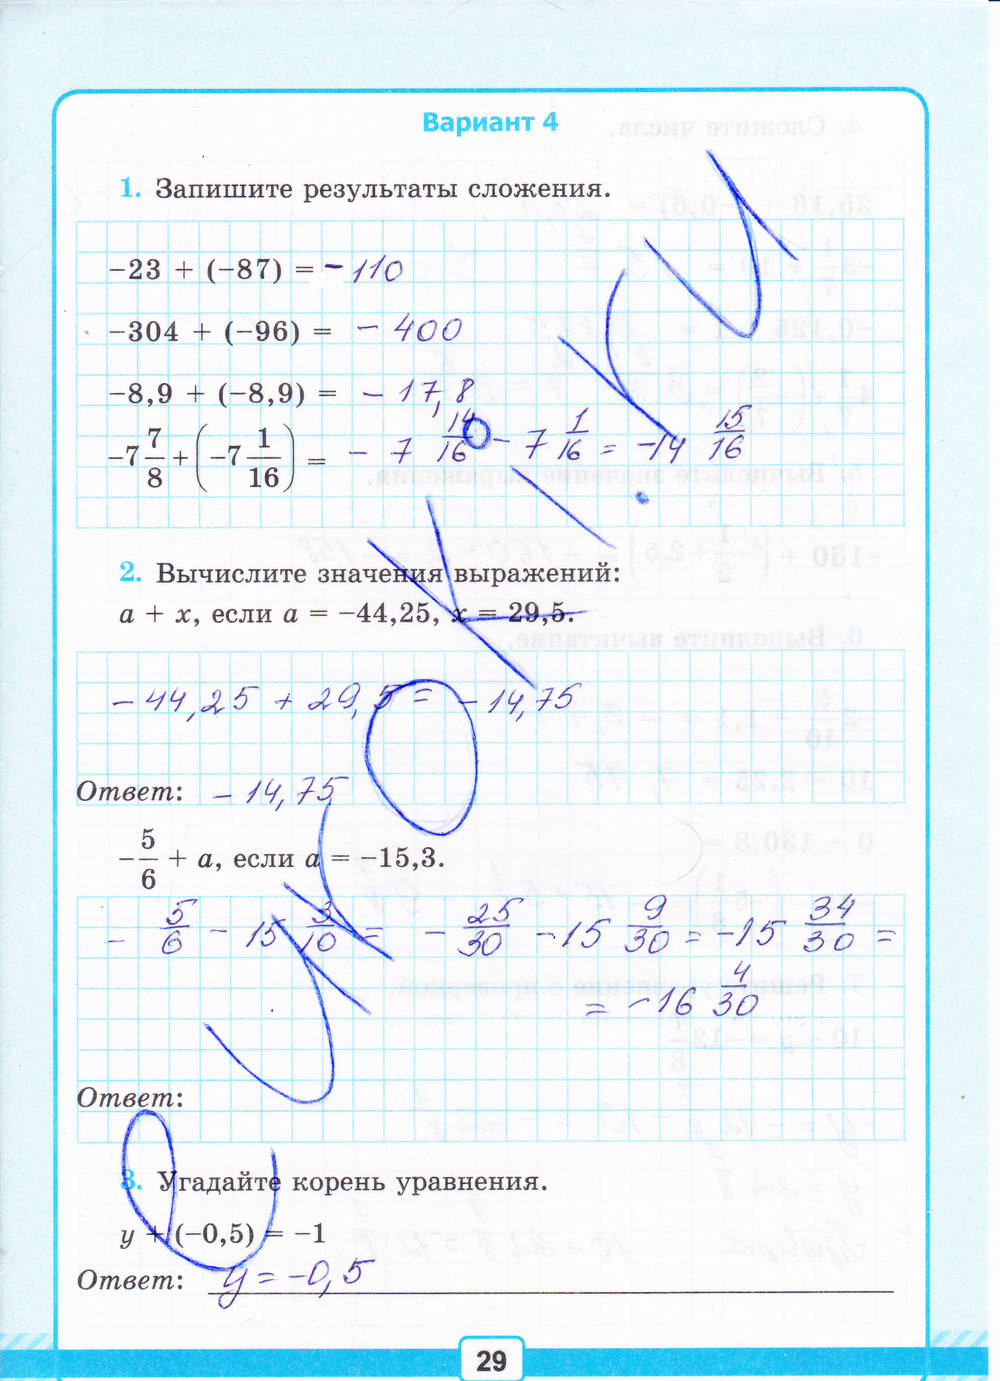 Вариант 4
1. Запишите результаты сложения.
−23 + (−87) = −110
−304 + (−96) = − 400
−8,9 + (−8,9) = − 17,8
−7 7/8 + (−7 1/16) = − 7 14/16 − 7 1/16 = −14 15/16
2. Вычислите значения выражений:
a + x, если a = −44,25, x = 29,5.
− 44,25 + 29,5 = − 14,75
Ответ: − 14,75
−5/6 + a, если a = −15,3.
− 5/6 − 15 3/10 = − 25/30 − 15 9/30 = −15 34/30 =
= −16 4/30
Ответ:
3. Угадайте корень уравнения.
y + (−0,5) = −1
Ответ: y = −0,5
29